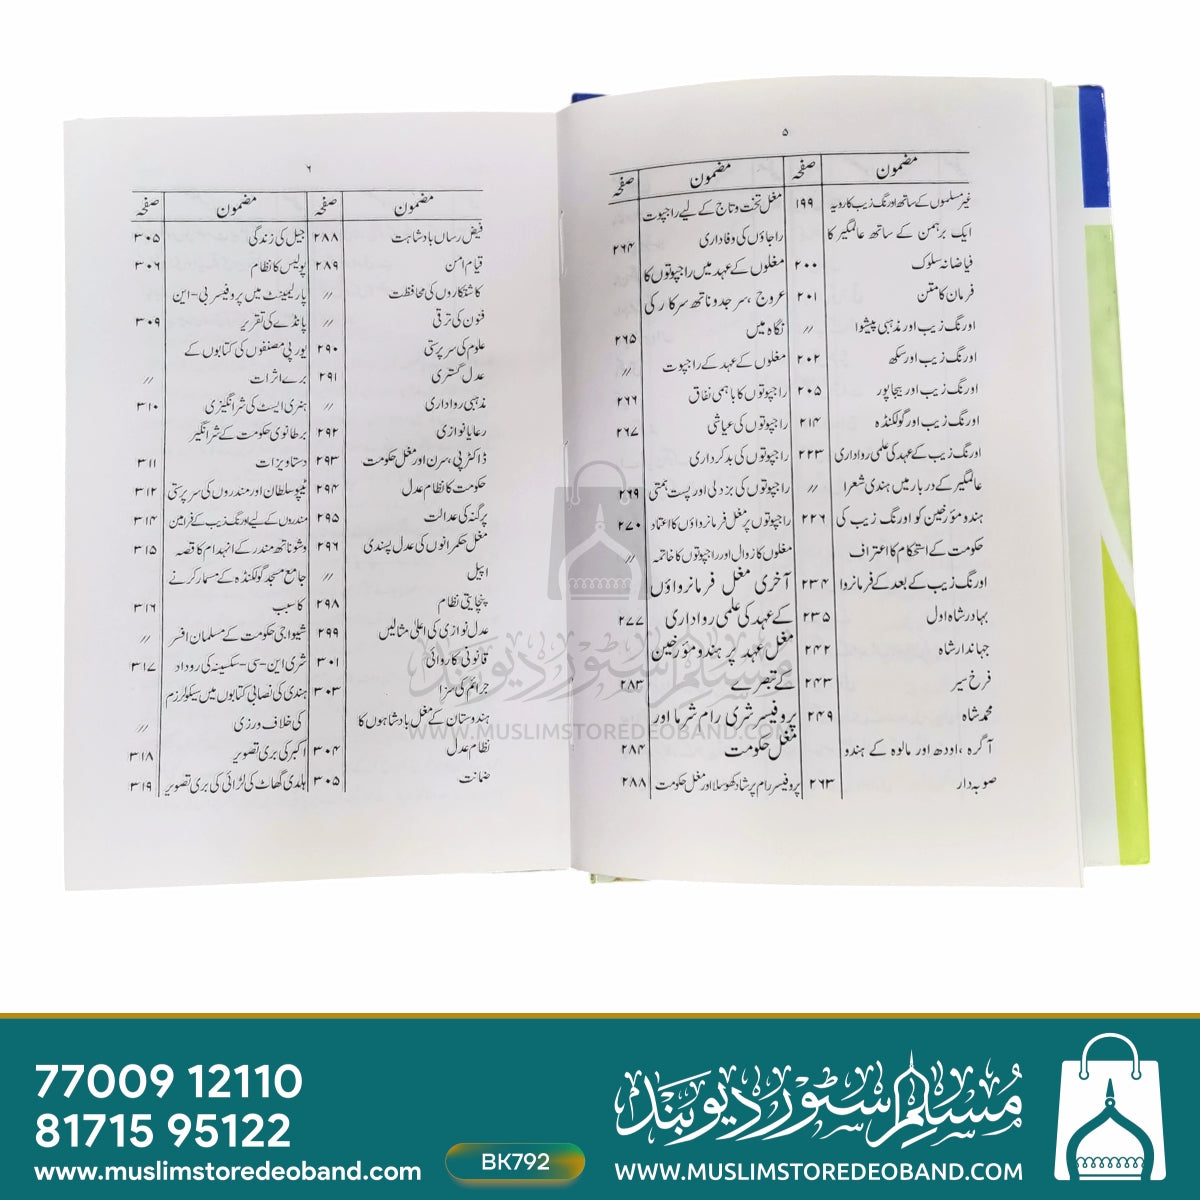 ۵
مضمون
صفحہ
غیر مسلموں کے ساتھ اورنگ زیب کا رویہ
۱۹۹
ایک برہمن کے ساتھ عالمگیر کا
فیاضانہ سلوک
۲۰۰
فرمان کا متن
۲۰۱
اورنگ زیب اور مذہبی پیشوا
〃
اورنگ زیب اور سکھ
۲۰۲
اورنگ زیب اور بیجاپور
۲۰۵
اورنگ زیب اور گولکنڈہ
۲۱۴
اورنگ زیب کے عہد کی علمی رواداری
۲۲۳
عالمگیر کے دربار میں ہندی شعرا
〃
ہندو مؤرخین کو اورنگ زیب کی
۲۲۶
حکومت کے استحکام کا اعتراف
اورنگ زیب کے بعد کے فرمانروا
۲۳۴
بہادر شاہ اول
۲۳۵
جہاندار شاہ
۲۴۲
فرخ سیر
۲۴۳
محمد شاہ
۲۴۹
آگرہ، اودھ اور مالوہ کے ہندو
صوبہ دار
۲۶۳
مضمون
صفحہ
مغل تخت و تاج کے لیے راجپوت
راجاؤں کی وفاداری
۲۶۴
مغلوں کے عہد میں راجپوتوں کا
عروج، سرجدوناتھ سرکار کی
نگاہ میں
۲۶۵
مغلوں کے عہد کے راجپوت
〃
راجپوتوں کا باہمی نفاق
۲۶۶
راجپوتوں کی عیاشی
۲۶۷
راجپوتوں کی بدکرداری
راجپوتوں کی بزدلی اور پست ہمتی
۲۶۹
راجپوتوں پر مغل فرمانرواؤں کا اعتماد
۲۷۰
مغلوں کا زوال اور راجپوتوں کا خاتمہ
〃
آخری مغل فرمانرواؤں
کے عہد کی علمی رواداری
۲۷۷
مغل عہد پر ہندو مؤرخین
کے تبصرے
۲۸۳
پروفیسر شری رام شرما اور
مغل حکومت
۲۸۴
پروفیسر رام پرشاد کھوسلا اور مغل حکومت
۲۸۸
۶
مضمون
صفحہ
فیض رساں بادشاہت
۲۸۸
قیام امن
۲۸۹
کاشتکاروں کی محافظت
〃
فنون کی ترقی
〃
علوم کی سرپرستی
۲۹۰
عدل گستری
۲۹۱
مذہبی رواداری
〃
رعایا نوازی
۲۹۲
ڈاکٹر پی، سرن اور مغل حکومت
۲۹۳
حکومت کا نظام عدل
۲۹۴
پرگنہ کی عدالت
۲۹۵
مغل حکمرانوں کی عدل پسندی
۲۹۶
اپیل
〃
پنچایتی نظام
۲۹۸
عدل نوازی کی اعلیٰ مثالیں
۲۹۹
قانونی کاروائی
۳۰۱
جرائم کی سزا
۳۰۳
ہندوستان کے مغل بادشاہوں کا
نظام عدل
۳۰۴
ضمانت
۳۰۵
مضمون
صفحہ
جیل کی زندگی
۳۰۵
پولیس کا نظام
۳۰۶
پارلیمینٹ میں پروفیسر بی-این
پانڈے کی تقریر
۳۰۹
یورپی مصنفوں کی کتابوں کے
برے اثرات
〃
ہنری ایسٹ کی شرانگیزی
۳۱۰
برطانوی حکومت کے شرانگیز
دستاویزات
۳۱۱
ٹیپو سلطان اور مندروں کی سرپرستی
۳۱۲
مندروں کے لیے اورنگ زیب کے فرامین
۳۱۴
وشوناتھ مندر کے انہدام کا قصہ
۳۱۵
جامع مسجد گولکنڈہ کے مسمار کرنے
کا سبب
۳۱۶
شیواجی حکومت کے مسلمان افسر
〃
شری این-سی-سکسینہ کی روداد
۳۱۷
ہندی کی نصابی کتابوں میں سیکولرزم
کی خلاف ورزی
〃
اکبر کی بری تصویر
۳۱۸
ہلدی گھاٹ کی لڑائی کی بری تصویر
۳۱۹
مسلم سٹور دیوبند
WWW.MUSLIMSTOREDEOBAND.COM
77009 12110
81715 95122
www.muslimstoredeoband.com
BK792
مسلم سٹور دیوبند
WWW.MUSLIMSTOREDEOBAND.COM